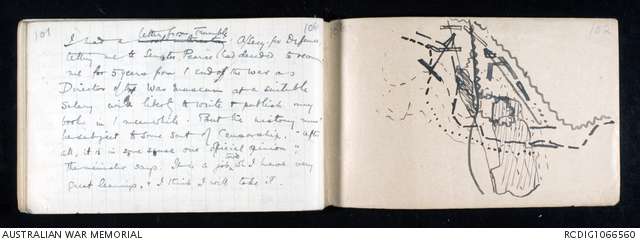 101
106
I had a letter from Trumble A/Secy for Defence
telling me tt Senator Pearce (had decided to
me for 5 years from t end of the War as
Director of the War Museum at a suitable
salary with liberty to write & publish my
books in t meanwhile. But the history must
be subject to some sort of Censorship. "After
all, it is in some sense an official opinion".
the minister says. It is a job wh I have very
great leanings. & I think I will take it.
102
AUSTRALIAN WAR MEMORIAL
RCDIG1066560